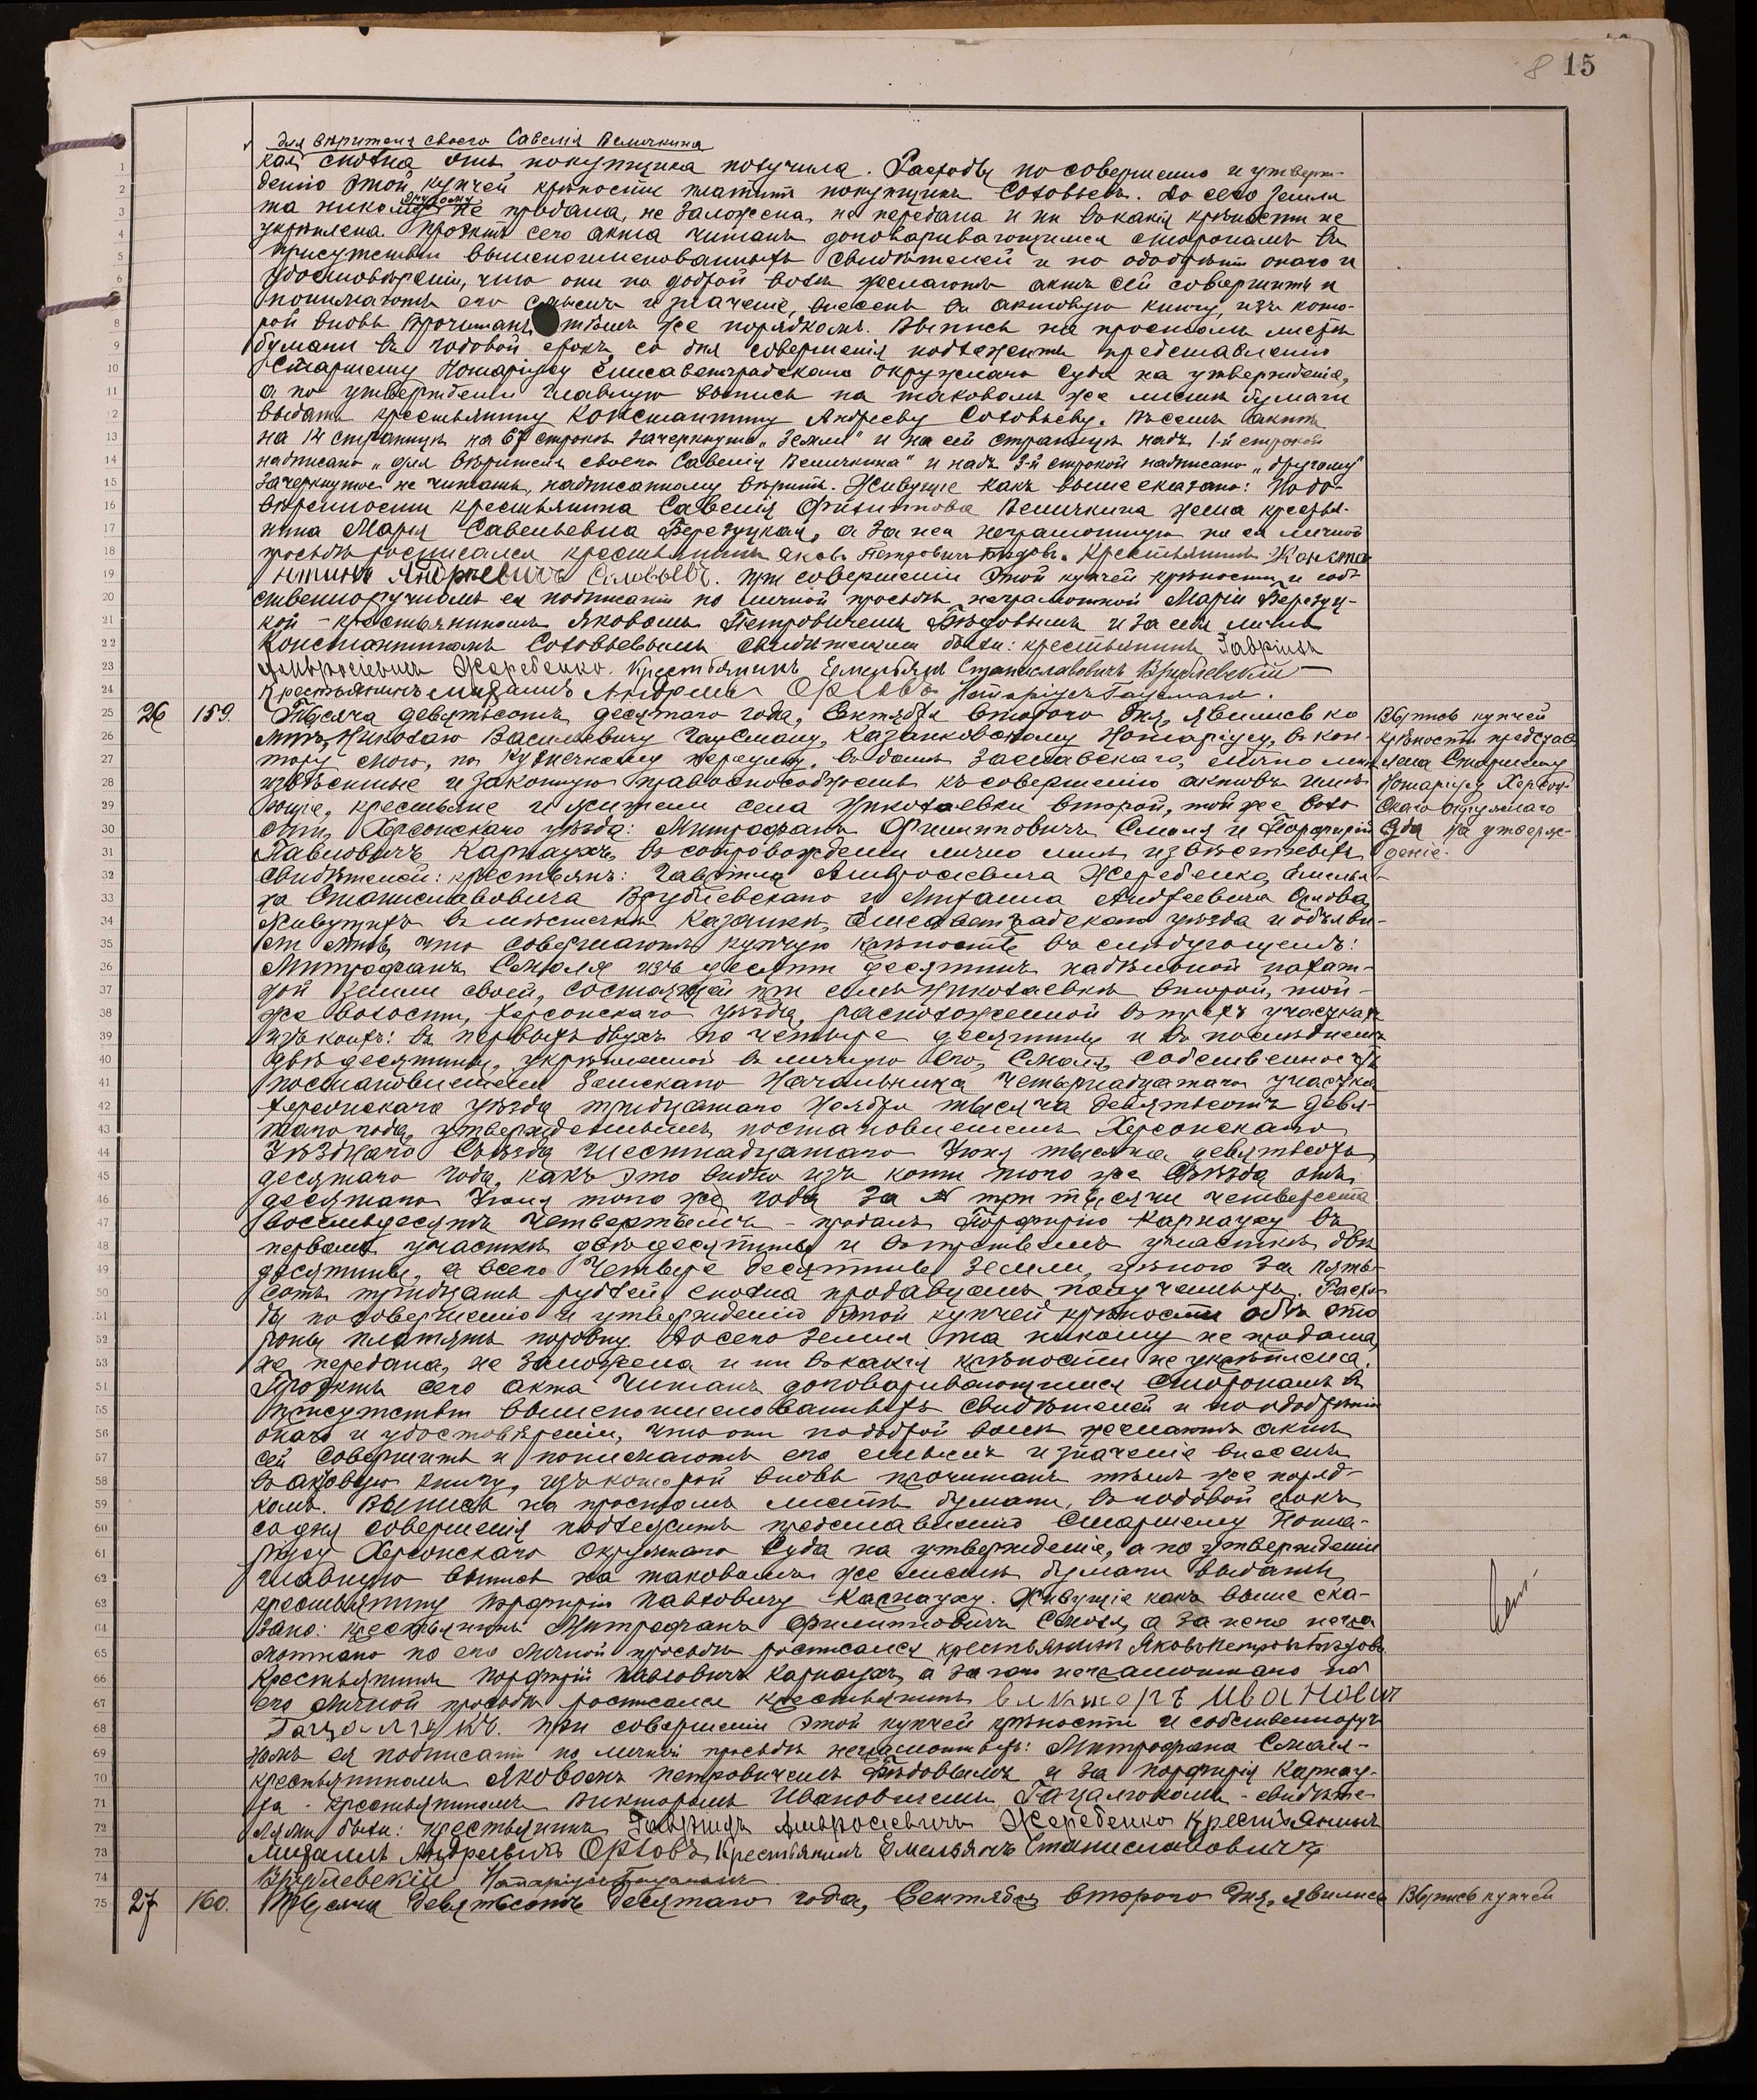 8 15
для вѣрителя своего Савелія Величкина
кая сполна отъ покупщика получила. Расходы по совершенію и утверж-
денію этой купчей крѣпости платитъ покупщикъ Соловьевъ. До сего земля
другому
та никому не продана, не заложена, не передана и ни въ какія крѣпости не
укрѣплена. Проэктъ сего акта читанъ договаривающимся сторонамъ въ
присутствіи вышепоименованныхъ свидѣтелей и по одобреніи онаго и
удостовѣреніи, что они по доброй волѣ желаютъ актъ сей совершить и
понимаютъ его смыслъ и значеніе, внесенъ въ актовую книгу, изъ кото-
рой вновь прочитанъ тѣмъ же порядкомъ. Выпись на простомъ листѣ
бумаги въ годовой срокъ со дня совершенія подлежитъ представленію
Старшему Нотаріусу Елисаветградскаго Окружнаго Суда на утвержденіе,
а по утвержденіи главную выпись на таковомъ же листѣ бумаги
выдать крестьянину Константину Андрееву Соловьеву. Въ семъ актѣ
на 14 страницѣ на 67 строкѣ зачеркнуто „Земли" и на сей страницѣ надъ 1-й строкой
надписано „для вѣрителя своего Савелія Величкина" и надъ 3-й строкой надписано „другому"
зачеркнутое не читать, надписанному вѣрить. Живущіе какъ выше сказано: По до-
вѣренности крестьянина Савелія Филиппова Величкина жена крестья-
нина Марія Савельевна Березуцкая, а за нея неграмотную по ея личной
просьбѣ росписался крестьянинъ Яковъ Петровичъ Бѣдовъ. Крестьянинъ Конста
нтинъ Андреевичъ Соловьевъ. При совершеніи этой купчей крѣпости и соб-
ственноручномъ ея подписаніи по личной просьбѣ неграмотной Маріи Березуц-
кой - крестьяниномъ Яковомъ Петровичемъ Бѣдовымъ и за себя лично
Константиномъ Соловьевымъ свидѣтелями были: крестьянинъ Гавріилъ
Амвросіевичъ Жеребенко. Крестьянинъ Емельянъ Станиславовичъ Врублевскій
Крестьянинъ Михаилъ Андреевъ Орловъ Нотаріусъ Гаусманъ.
26 159. Тысяча девятьсотъ десятаго года, Сентября второго дня, явились ко
мнѣ, Николаю Васильевичу Гаусману, Казанковскому Нотаріусу, въ кон-
тору мою, по Кузнечному переулку, въ домѣ Заславскаго, лично мнѣ
извѣстные и законную правоспособность къ совершенію актовъ имѣ-
ющіе, крестьяне и жители села Николаевки второй, той же воло-
сти, Херсонскаго уѣзда: Митрофанъ Филипповичъ Смоля и Порфирій
Павловичъ Карнаухъ, въ сопровожденіи лично мнѣ извѣстныхъ
свидѣтелей: крестьянъ: Гавріила Амвросіевича Жеребенко, Емелья-
на Станиславовича Врублевскаго и Михаила Андреевича Орлова,
живущихъ въ мѣстечкѣ Казанкѣ, Елисаветградскаго уѣзда и объяви-
ли мнѣ, что совершаютъ купчую крѣпость въ слѣдующемъ:
Митрофанъ Смоля изъ десяти десятинъ надѣльной пахат-
ной земли своей, состоящей при селѣ Николаевкѣ второй, той-
же волости, Херсонскаго уѣзда, расположенной въ трехъ участкахъ
изъ коихъ: въ первыхъ двухъ по четыре десятины и въ послѣднемъ
двѣ десятины, укрѣпленной въ личную его, Смоля, собственность
постановленіемъ Земскаго Начальника Четырнадцатаго участка
Херсонскаго уѣзда тридцатаго Ноября тысяча девятьсотъ девя-
таго года, утвержденнымъ постановленіемъ Херсонскаго
Уѣзднаго Съѣзда шестнадцатаго Іюня тысяча девятьсотъ
десятаго года, какъ это видно изъ копіи того же Съѣзда отъ
десятаго Іюля того же года за № три тысячи четыреста
восемьдесятъ четвертымъ - продалъ Порфирію Карнауху въ
первомъ участкѣ двѣ десятины и въ третьемъ участкѣ двѣ
десятины, а всего четыре десятины земли, цѣною за пять-
сотъ тридцать рублей сполна продавцомъ полученныхъ. Расхо-
ды по совершенію и утвержденію этой купчей крѣпости обѣ сто
роны платятъ поровну. До сего земля та никому не продана,
не передана, не заложена и ни въ какія крѣпости не укрѣплена.
Проэктъ сего акта читанъ договаривающимся сторонамъ въ
присутствіи вышепоименованныхъ свидѣтелей и по одобреніи
онаго и удостовѣреніи, что они по доброй волѣ желаютъ актъ
сей совершить и понимаютъ его смыслъ и значеніе внесенъ
въ актовую книгу, изъ которой вновь прочитанъ тѣмъ же поряд-
комъ. Выпись на простомъ листѣ бумаги, въ годовой срокъ
со дня совершенія подлежитъ представленію Старшему Нота-
ріусу Херсонскаго Окружнаго Суда на утвержденіе, а по утвержденіи
главную выпись на таковомъ же листѣ бумаги выдать
крестьянину Порфирію Павловичу Карнауху. Живущіе какъ выше ска-
зано: крестьянинъ Митрофанъ Филипповичъ Смоля, а за него негра
мотнаго по его личной просьбѣ росписался крестьянинъ Яковъ Петровъ Бѣдовъ.
Крестьянинъ Порфирій Павловичъ Карнаухъ, а за него неграмотнаго по
его личной просьбѣ росписался крестьянинъ Викторъ Ивановичъ
При совершеніи этой купчей крѣпости и собственноруч
номъ ея подписаніи по личной просьбѣ неграмотныхъ: Митрофана Смоля-
крестьяниномъ Яковомъ Петровичемъ Бѣдовымъ и за Порфирія Карнау-
ха - крестьяниномъ Викторомъ Ивановичемъ - свидѣте-
лями были: крестьянинъ Гавріилъ Амвросіевичъ Жеребенко Крестьянинъ
Михаилъ Андреевичъ Орловъ Крестьянинъ Емельянъ Станиславовичъ
Врублевскій Нотаріусъ Гаусманъ
27 160. Тысяча девятьсотъ десятаго года, Сентября второго дня, явились
Выпись купчей
крѣпости представ
лена Старшему
Нотаріусу Херсон
скаго Окружнаго
Суда на утверж-
деніе.
Выпись купчей